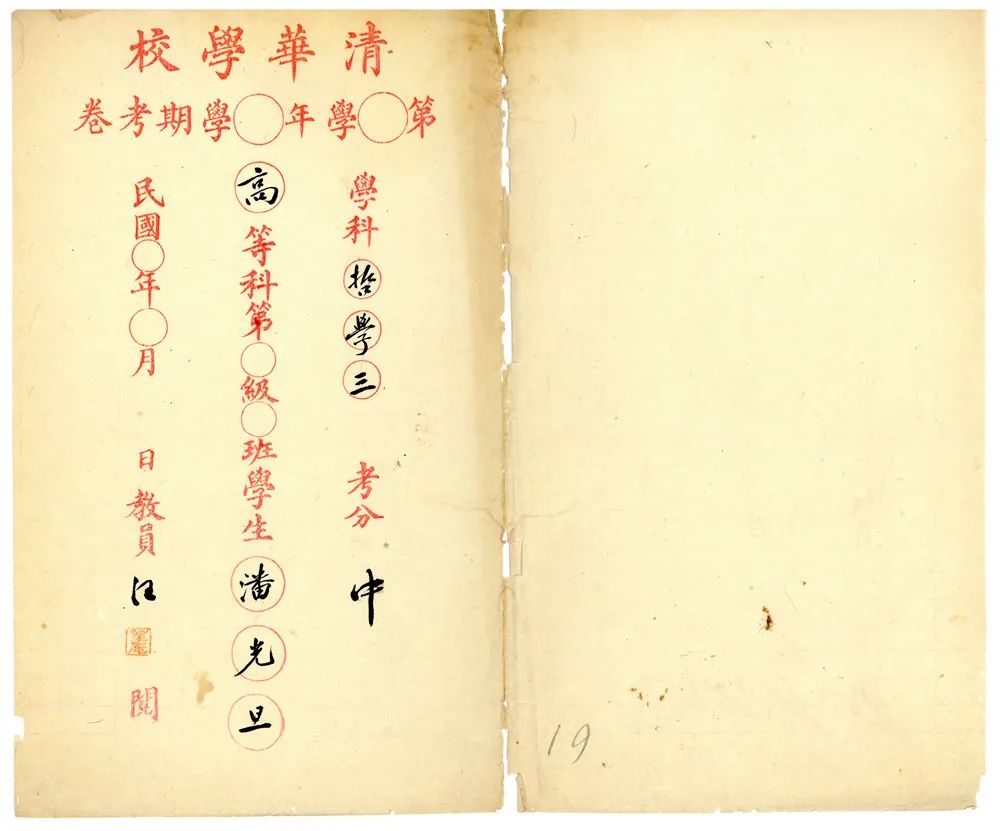 清華學校
第○學年○學期考卷
學科哲學三 考分中
高等科第○級○班學生潘光旦
民國○年○月 日教員汪 閱
19